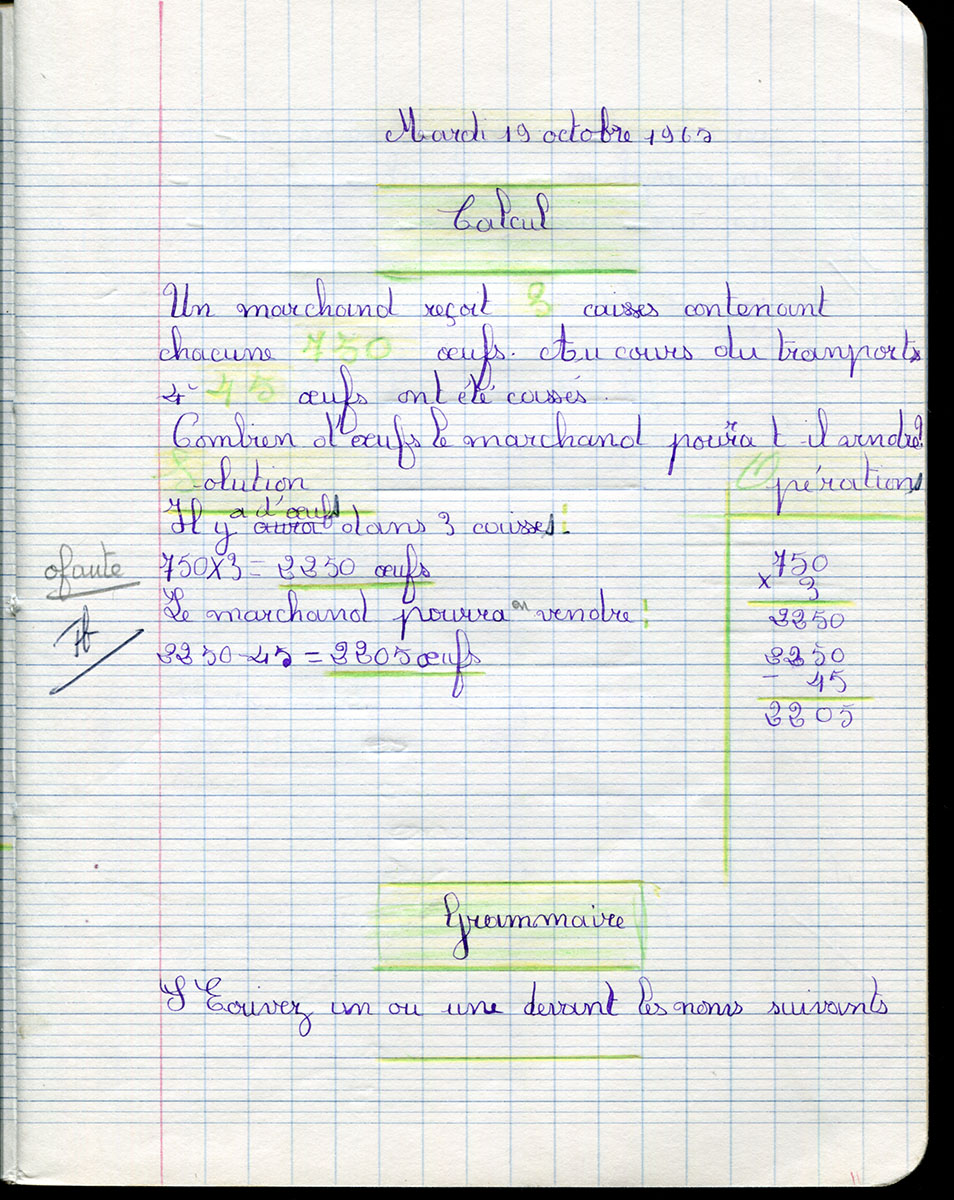 Mardi 19 octobre 1965
Calcul
Un marchand reçoit 3 caisses contenant
chacune 750 œufs. Au cours du tranports
4 45 œufs ont été cassés.
Combien d'œufs le marchand pourra t il vendre?
Solution
Opérations
a d'œufs
Il y aura dans 3 caisses:
750 x 3 = 2250 œufs
Le marchand pourra en vendre:
2250 - 45 = 2205 œufs
0 faute
TB
750
x 3
2250
2250
- 45
2205
Grammaire
I Ecrivez un ou une devant les noms suivants